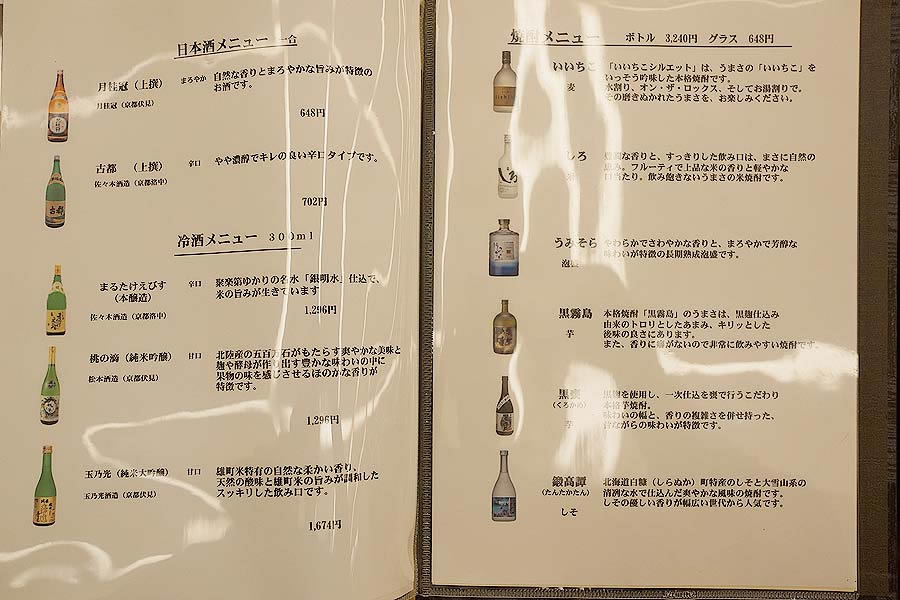 日本酒メニュー 一合
月桂冠（上撰） まろやか 自然な香りとまろやかな旨みが特徴の
お酒です。
月桂冠（京都伏見）
648円
古都 （上撰） 辛口 やや濃醇でキレの良い辛口タイプです。
佐々木酒造（京都洛中）
702円
冷酒メニュー 300ml
まるたけえびす 辛口 聚楽第ゆかりの名水「銀明水」仕込で、
（本醸造） 米の旨みが生きています
佐々木酒造（京都洛中） 1,296円
桃の滴（純米吟醸） 甘口 北陸産の五百万石がもたらす爽やかな美味と
麹や酵母が作り出す豊かな味わいの中に
松本酒造（京都伏見） 果物の味を感じさせるほのかな香りが
特徴です。
1,296円
玉乃光（純米大吟醸） 甘口 雄町米特有の自然な柔かい香り、
天然の酸味と雄町米の旨みが調和した
玉乃光酒造（京都伏見） スッキリした飲み口です。
1,674円
焼酎メニュー ボトル 3,240円 グラス 648円
いいちこ 「いいちこシルエット」は、うまさの「いいちこ」を
いっそう吟味した本格焼酎です。
麦 水割り、オン・ザ・ロックス、そしてお湯割りで。
その磨きぬかれたうまさを、お楽しみください。
しろ 豊潤な香りと、すっきりした飲み口は、まさに自然の
恵み。フルーティで上品な米の香りと軽やかな
口当たり。飲み飽きないうまさの米焼酎です。
うみそら やわらかでさわやかな香りと、まろやかで芳醇な
味わいが特徴の長期熟成泡盛です。
泡盛
黒霧島 本格焼酎「黒霧島」のうまさは、黒麹仕込み
由来のトロリとしたあまみ、キリッとした
芋 後味の良さにあります。
また、香りに癖がないので非常に飲みやすい焼酎です。
黒甕 黒麹を使用し、一次仕込を甕で行うこだわり
（くろかめ） 本格芋焼酎。
味わいの幅と、香りの複雑さを併せ持った、
芋 昔ながらの味わいが特徴です。
鍛高譚 北海道白糠（しらぬか）町特産のしそと大雪山系の
（たんたかたん） 清冽な水で仕込んだ爽やかな風味の焼酎です。
しその優しい香りが幅広い世代から人気です。
しそ